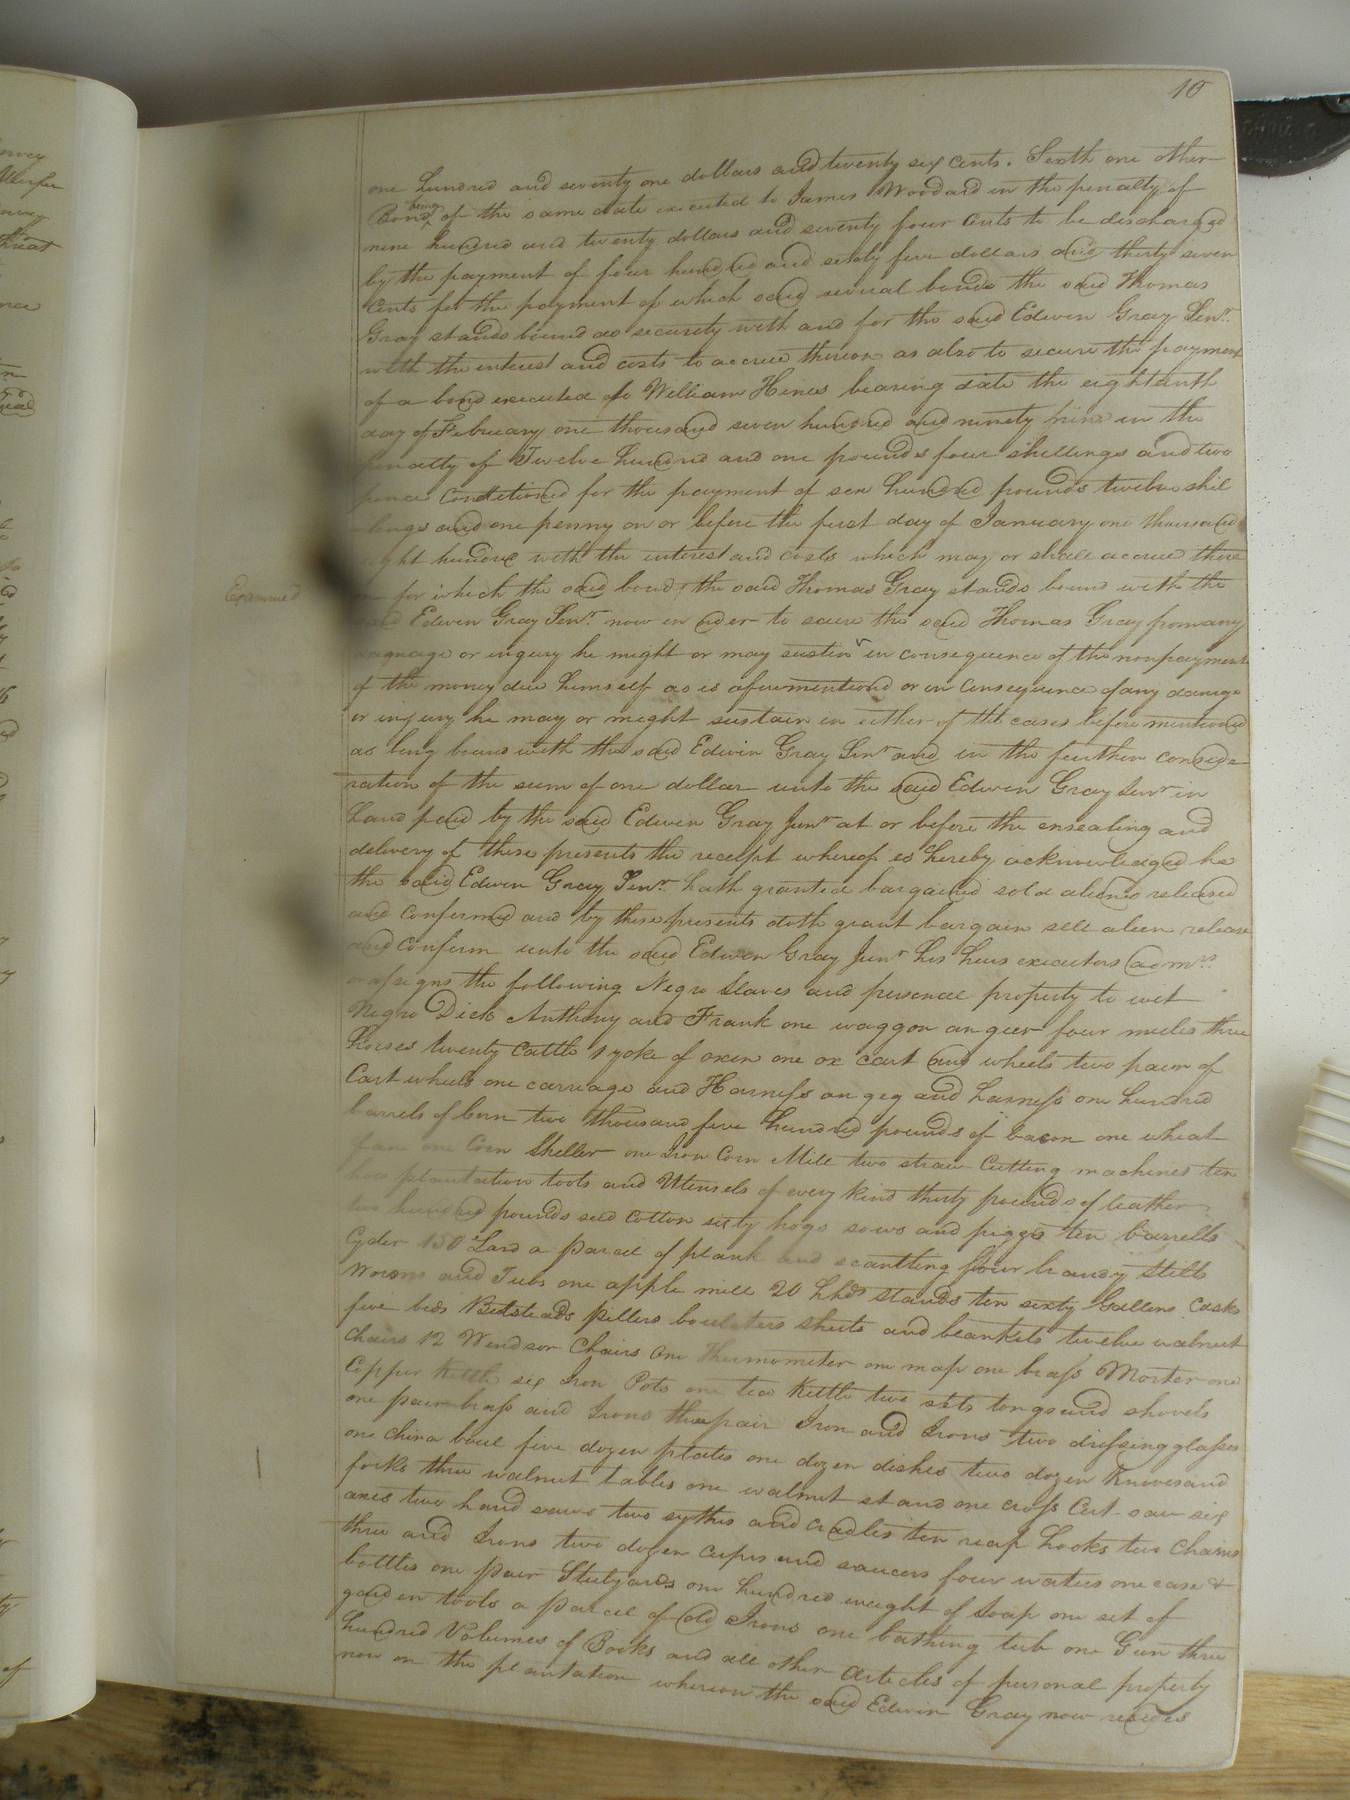 10
one hundred and seventy one dollars and twenty six cents. Sixth one other
Bond being of the same date executed to James Woodard in the penalty of
nine hundred and twenty dollars and seventy four Cents to be discharged
by the payment of four hundred and sixty five dollars and thirty seven
Cents for the payment of which said several bonds the said Thomas
Gray stands bound as security with and for the said Edwin Gray Senr.
with the interest and costs to accrue thereon as also to secure the payment
of a bond executed to William Hines bearing date the eighteenth
day of February one thousand seven hundred and ninety nine in the
penalty of Twelve hundred and one pounds four shillings and two
pence Conditioned for the payment of six hundred pounds twelve shil
lings and one penny on or before the first day of January one thousand
ght hundred with the interest and costs which may or shall accrue there
on for which the said bond the said Thomas Gray stands bound with the
Examined
said Edwin Gray Senr. now in order to secure the said Thomas Gray from any
damage or injury he might or may sustain in consequence of the nonpayment
of the money due himself as is aforementioned or in Consequence of any damage
or injury he may or might sustain in either of the cases before mentioned
as being bound with the said Edwin Gray Senr and in the further conside
ration of the sum of one dollar unto the said Edwin Gray Senr in
hand paid by the said Edwin Gray Junr at or before the ensealing and
delivery of these presents the receipt whereof is hereby acknowledged he
the said Edwin Gray Senr. hath granted bargained sold aliened released
and Confirmed and by these presents doth grant bargain sell alien release
and Confirm unto the said Edwin Gray Junr his heirs executors admrs.
or assigns the following Negro Slaves and personal property to wit
Negro Dick Anthony and Frank one waggon an geer four mules three
horses twenty Cattle 1 yoke of oxen one ox cart and wheels two pair of
Cart wheels one carriage and Harness an gig and harness one hundred
barrels of Corn two thousand five hundred pounds of bacon one wheat
fan one Corn Sheller one Iron Corn Mill two straw Cutting machines ten
hoes plantation tools and Utensels of every kind thirty pounds of leather
two hundred pounds seed cotton sixty hogs sows and piggs ten barrells
Cyder 150 Lard a parcel of plank and scantling four brandy Stills
Worms and Tubs one apple mill 20 hhds stands ten sixty Gallons Casks
five beds Betsteads pillers boulsters sheets and blankets twelve walnut
chairs 12 Windsor Chairs One Thermometer one map one brass Morter one
Copper Kettle six Iron Pots one tea Kettle two sets tongs and shovels
one pair brass and Irons three pair Iron and Irons two dressing glasses
one china boul five dozen plates one dozen dishes two dozen Knives and
forks three walnut tables one walnut stand one cross Cut saw six
axes two hand saws two sythes and cradles ten reap hooks two Chains
three and Irons two dozen cups and saucers four waters one case &
bottles one pair Stilyards one hundred weight of Soap one set of
garden tools a parcel of old Irons one bathing tub one Gun three
hundred Volumes of Books and all other articles of personal property
now on the plantation whereon the said Edwin Gray now resides